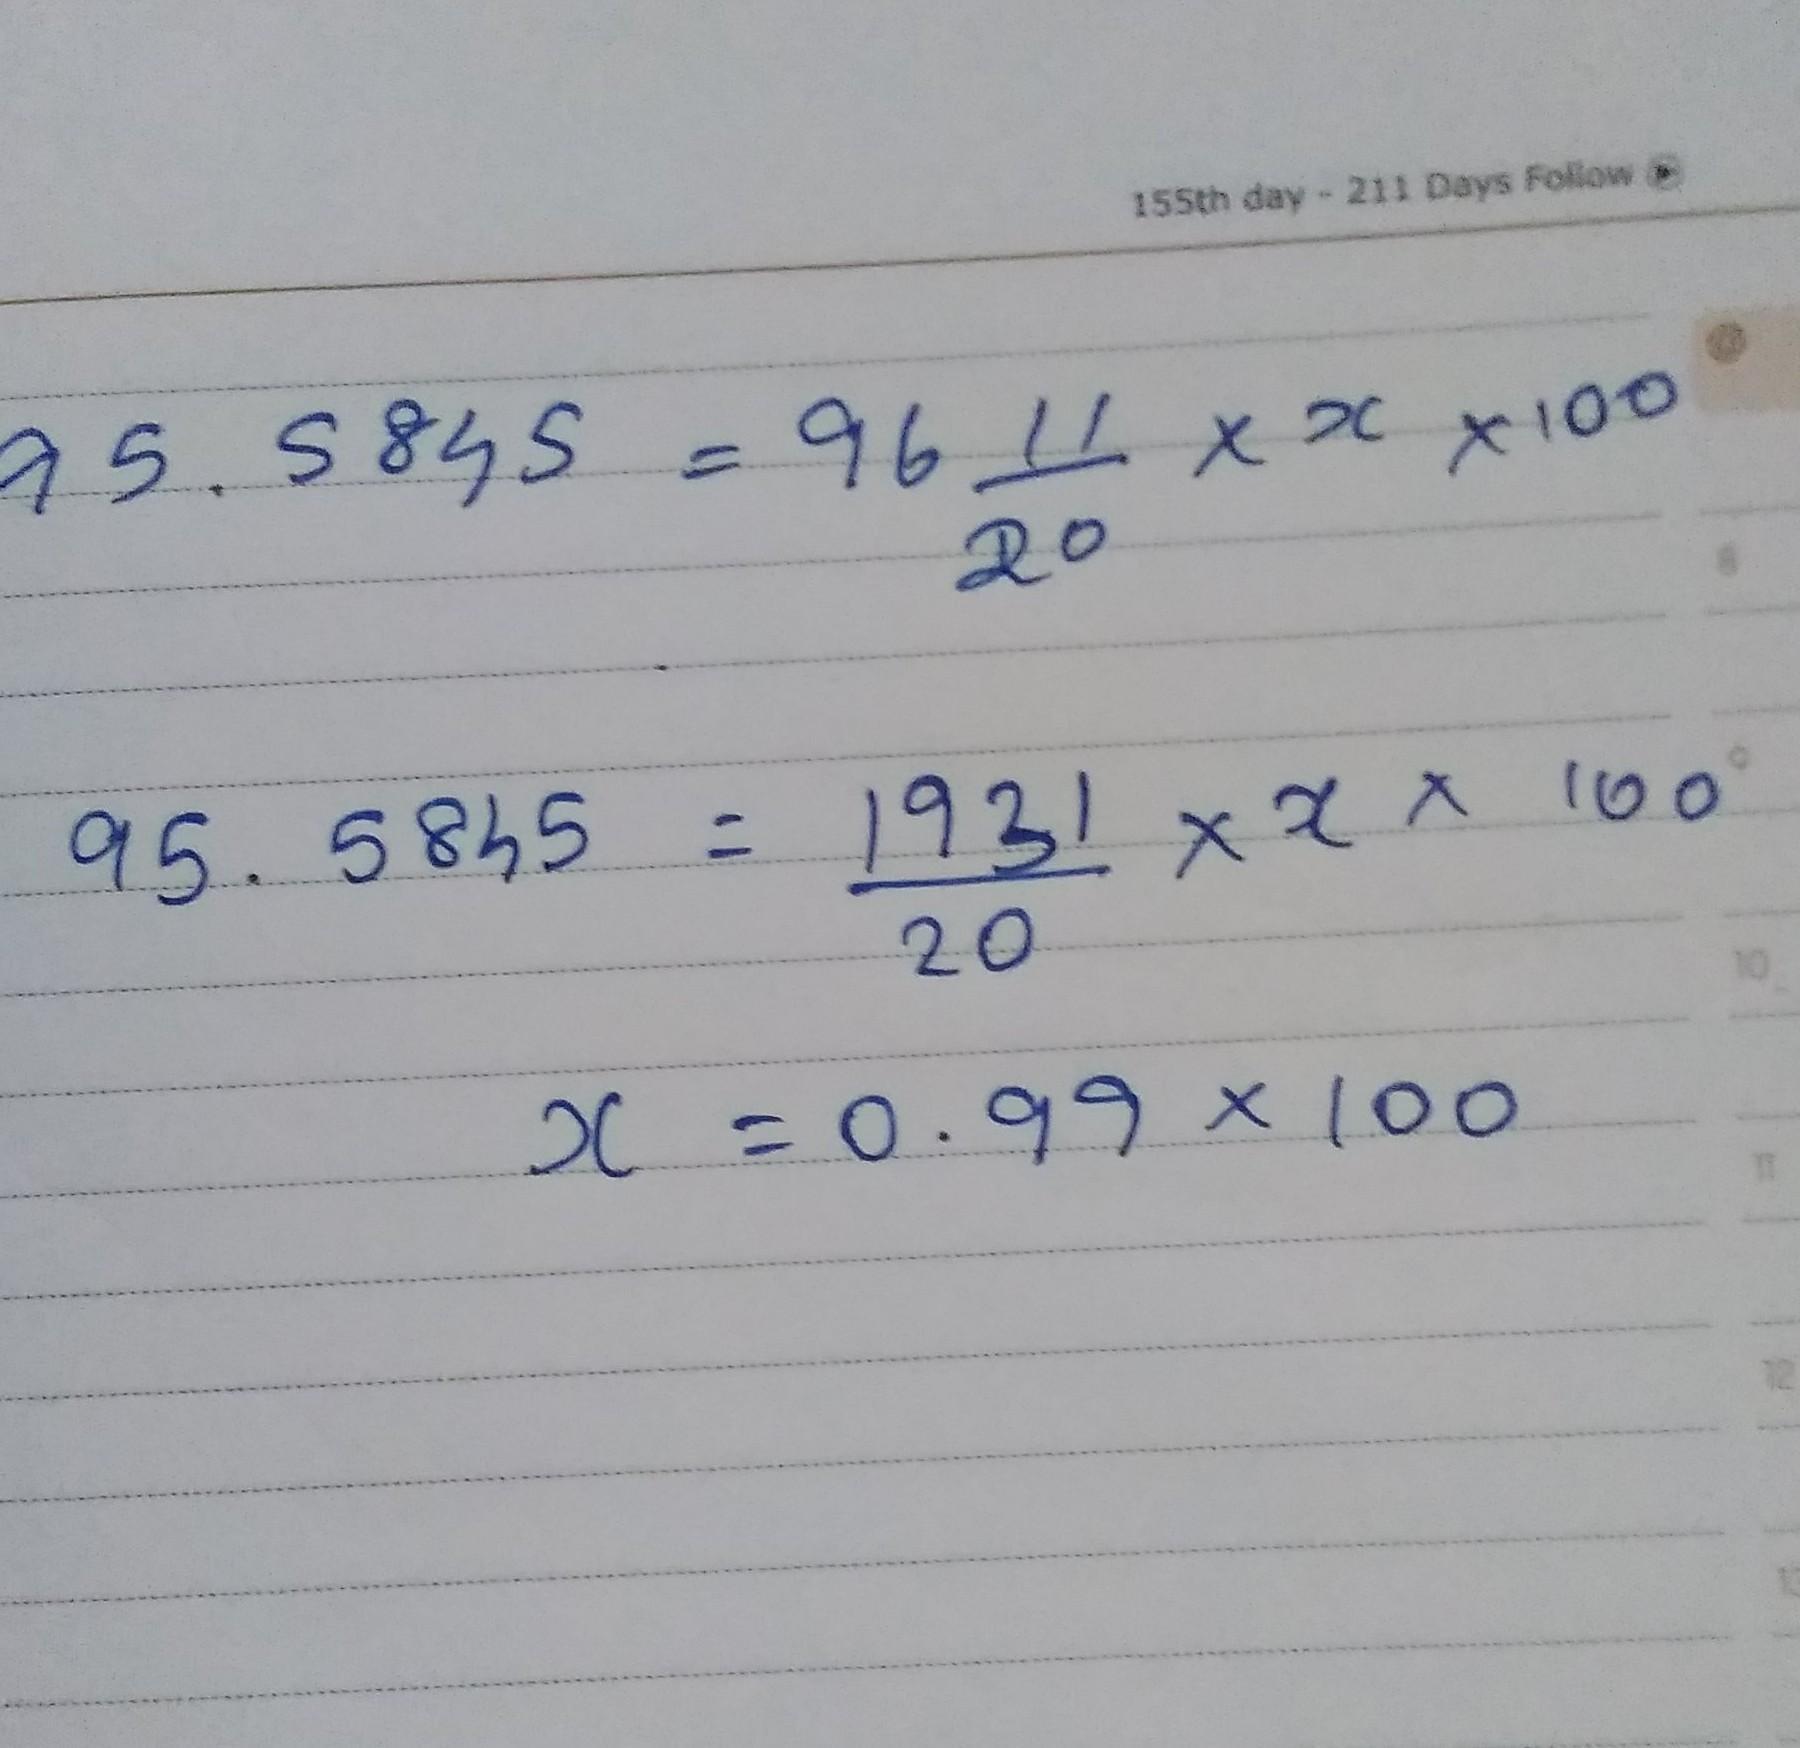 155th day - 211 Days Follow
95.5845 = 96 11/20 × x × 100
95.5845 = 1931/20 × x × 100
8
10
x = 0.99 × 100
11
12